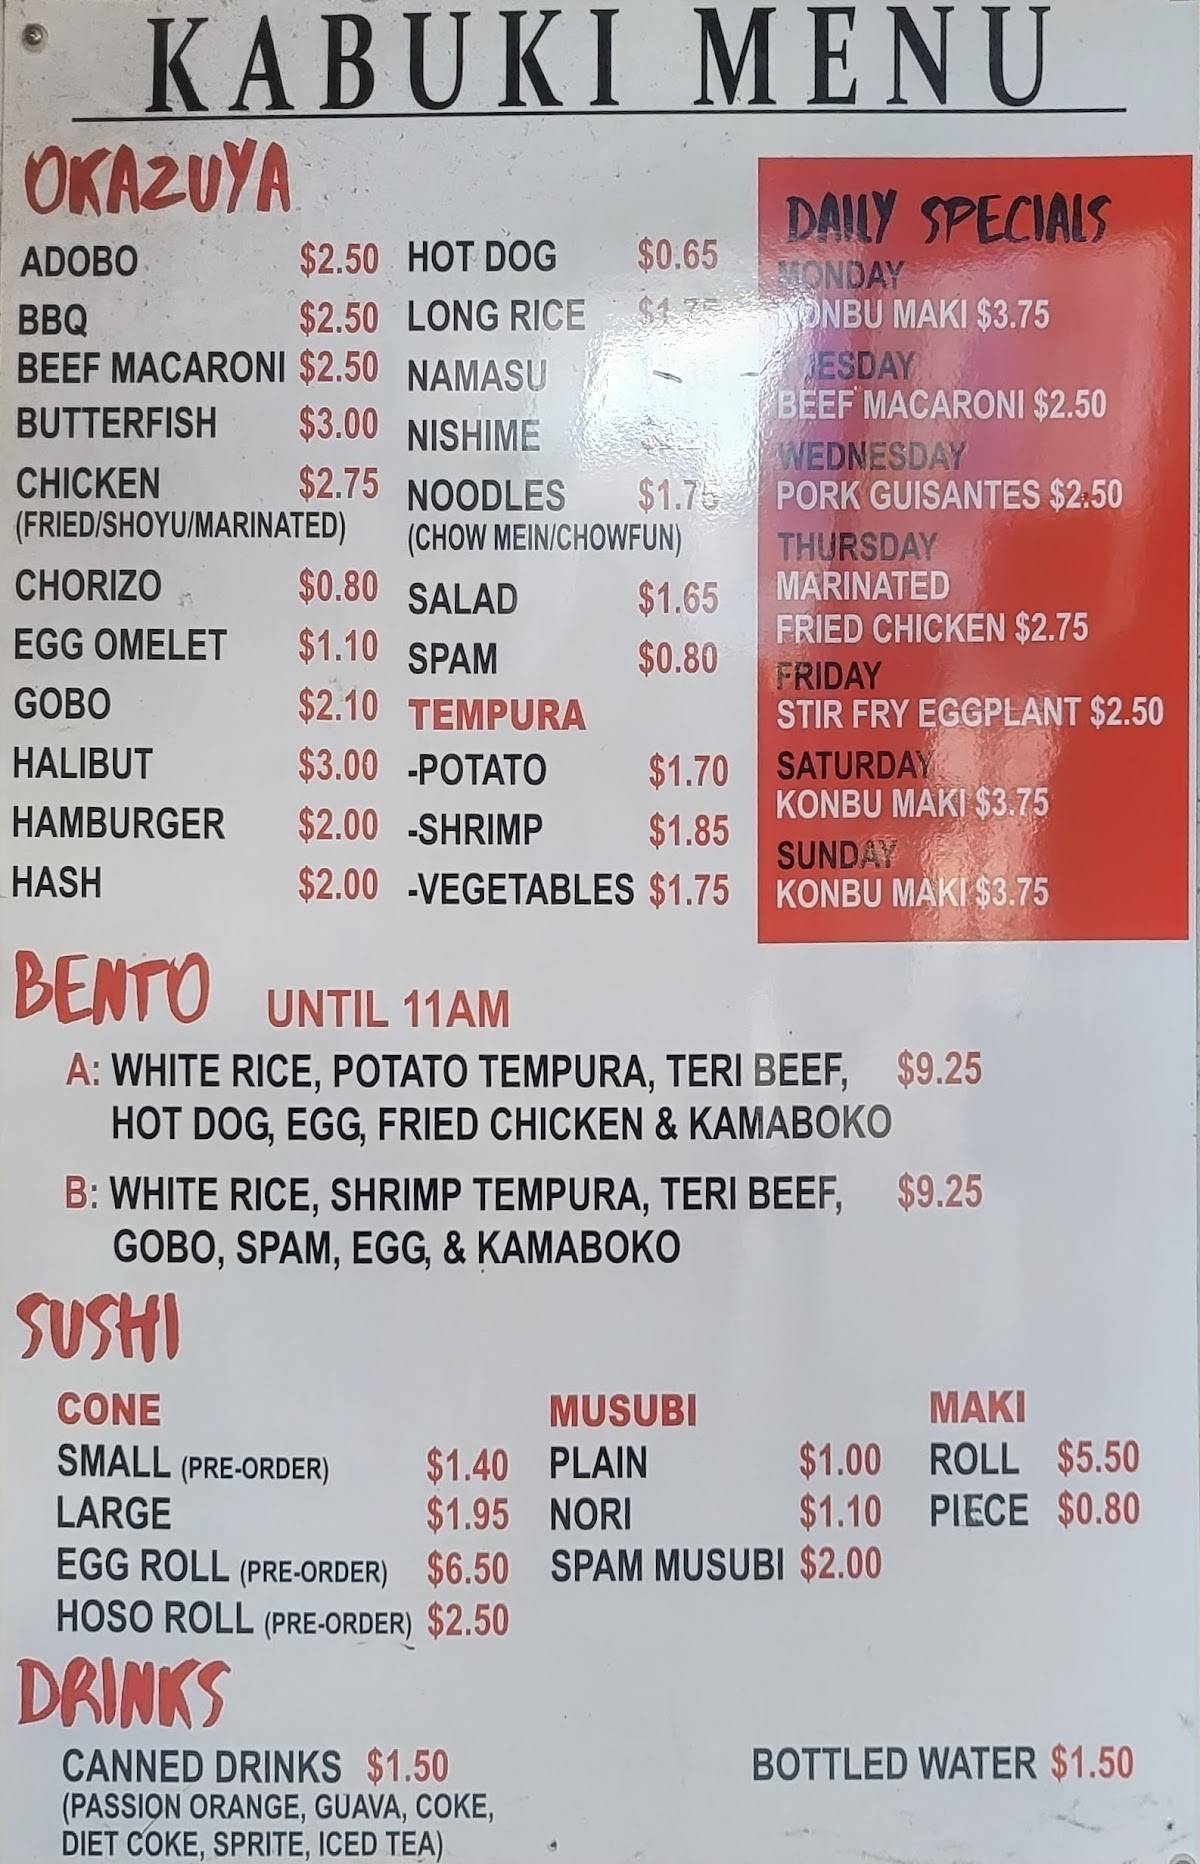 KABUKI MENU
OKAZUYA
ADOBO $2.50
BBQ $2.50
BEEF MACARONI $2.50
BUTTERFISH $3.00
CHICKEN $2.75
(FRIED/SHOYU/MARINATED)
CHORIZO $0.80
EGG OMELET $1.10
GOBO $2.10
HALIBUT $3.00
HAMBURGER $2.00
HASH $2.00
HOT DOG $0.65
LONG RICE $1.75
NAMASU
NISHIME
NOODLES $1.75
(CHOW MEIN/CHOWFUN)
SALAD $1.65
SPAM $0.80
TEMPURA
-POTATO $1.70
-SHRIMP $1.85
-VEGETABLES $1.75
DAILY SPECIALS
MONDAY
KONBU MAKI $3.75
TUESDAY
BEEF MACARONI $2.50
WEDNESDAY
PORK GUISANTES $2.50
THURSDAY
MARINATED
FRIED CHICKEN $2.75
FRIDAY
STIR FRY EGGPLANT $2.50
SATURDAY
KONBU MAKI $3.75
SUNDAY
KONBU MAKI $3.75
BENTO UNTIL 11AM
A: WHITE RICE, POTATO TEMPURA, TERI BEEF, $9.25
HOT DOG, EGG, FRIED CHICKEN & KAMABOKO
B: WHITE RICE, SHRIMP TEMPURA, TERI BEEF, $9.25
GOBO, SPAM, EGG, & KAMABOKO
SUSHI
CONE
SMALL (PRE-ORDER) $1.40
LARGE $1.95
EGG ROLL (PRE-ORDER) $6.50
HOSO ROLL (PRE-ORDER) $2.50
MUSUBI
PLAIN $1.00
NORI $1.10
SPAM MUSUBI $2.00
MAKI
ROLL $5.50
PIECE $0.80
DRINKS
CANNED DRINKS $1.50
(PASSION ORANGE, GUAVA, COKE,
DIET COKE, SPRITE, ICED TEA)
BOTTLED WATER $1.50